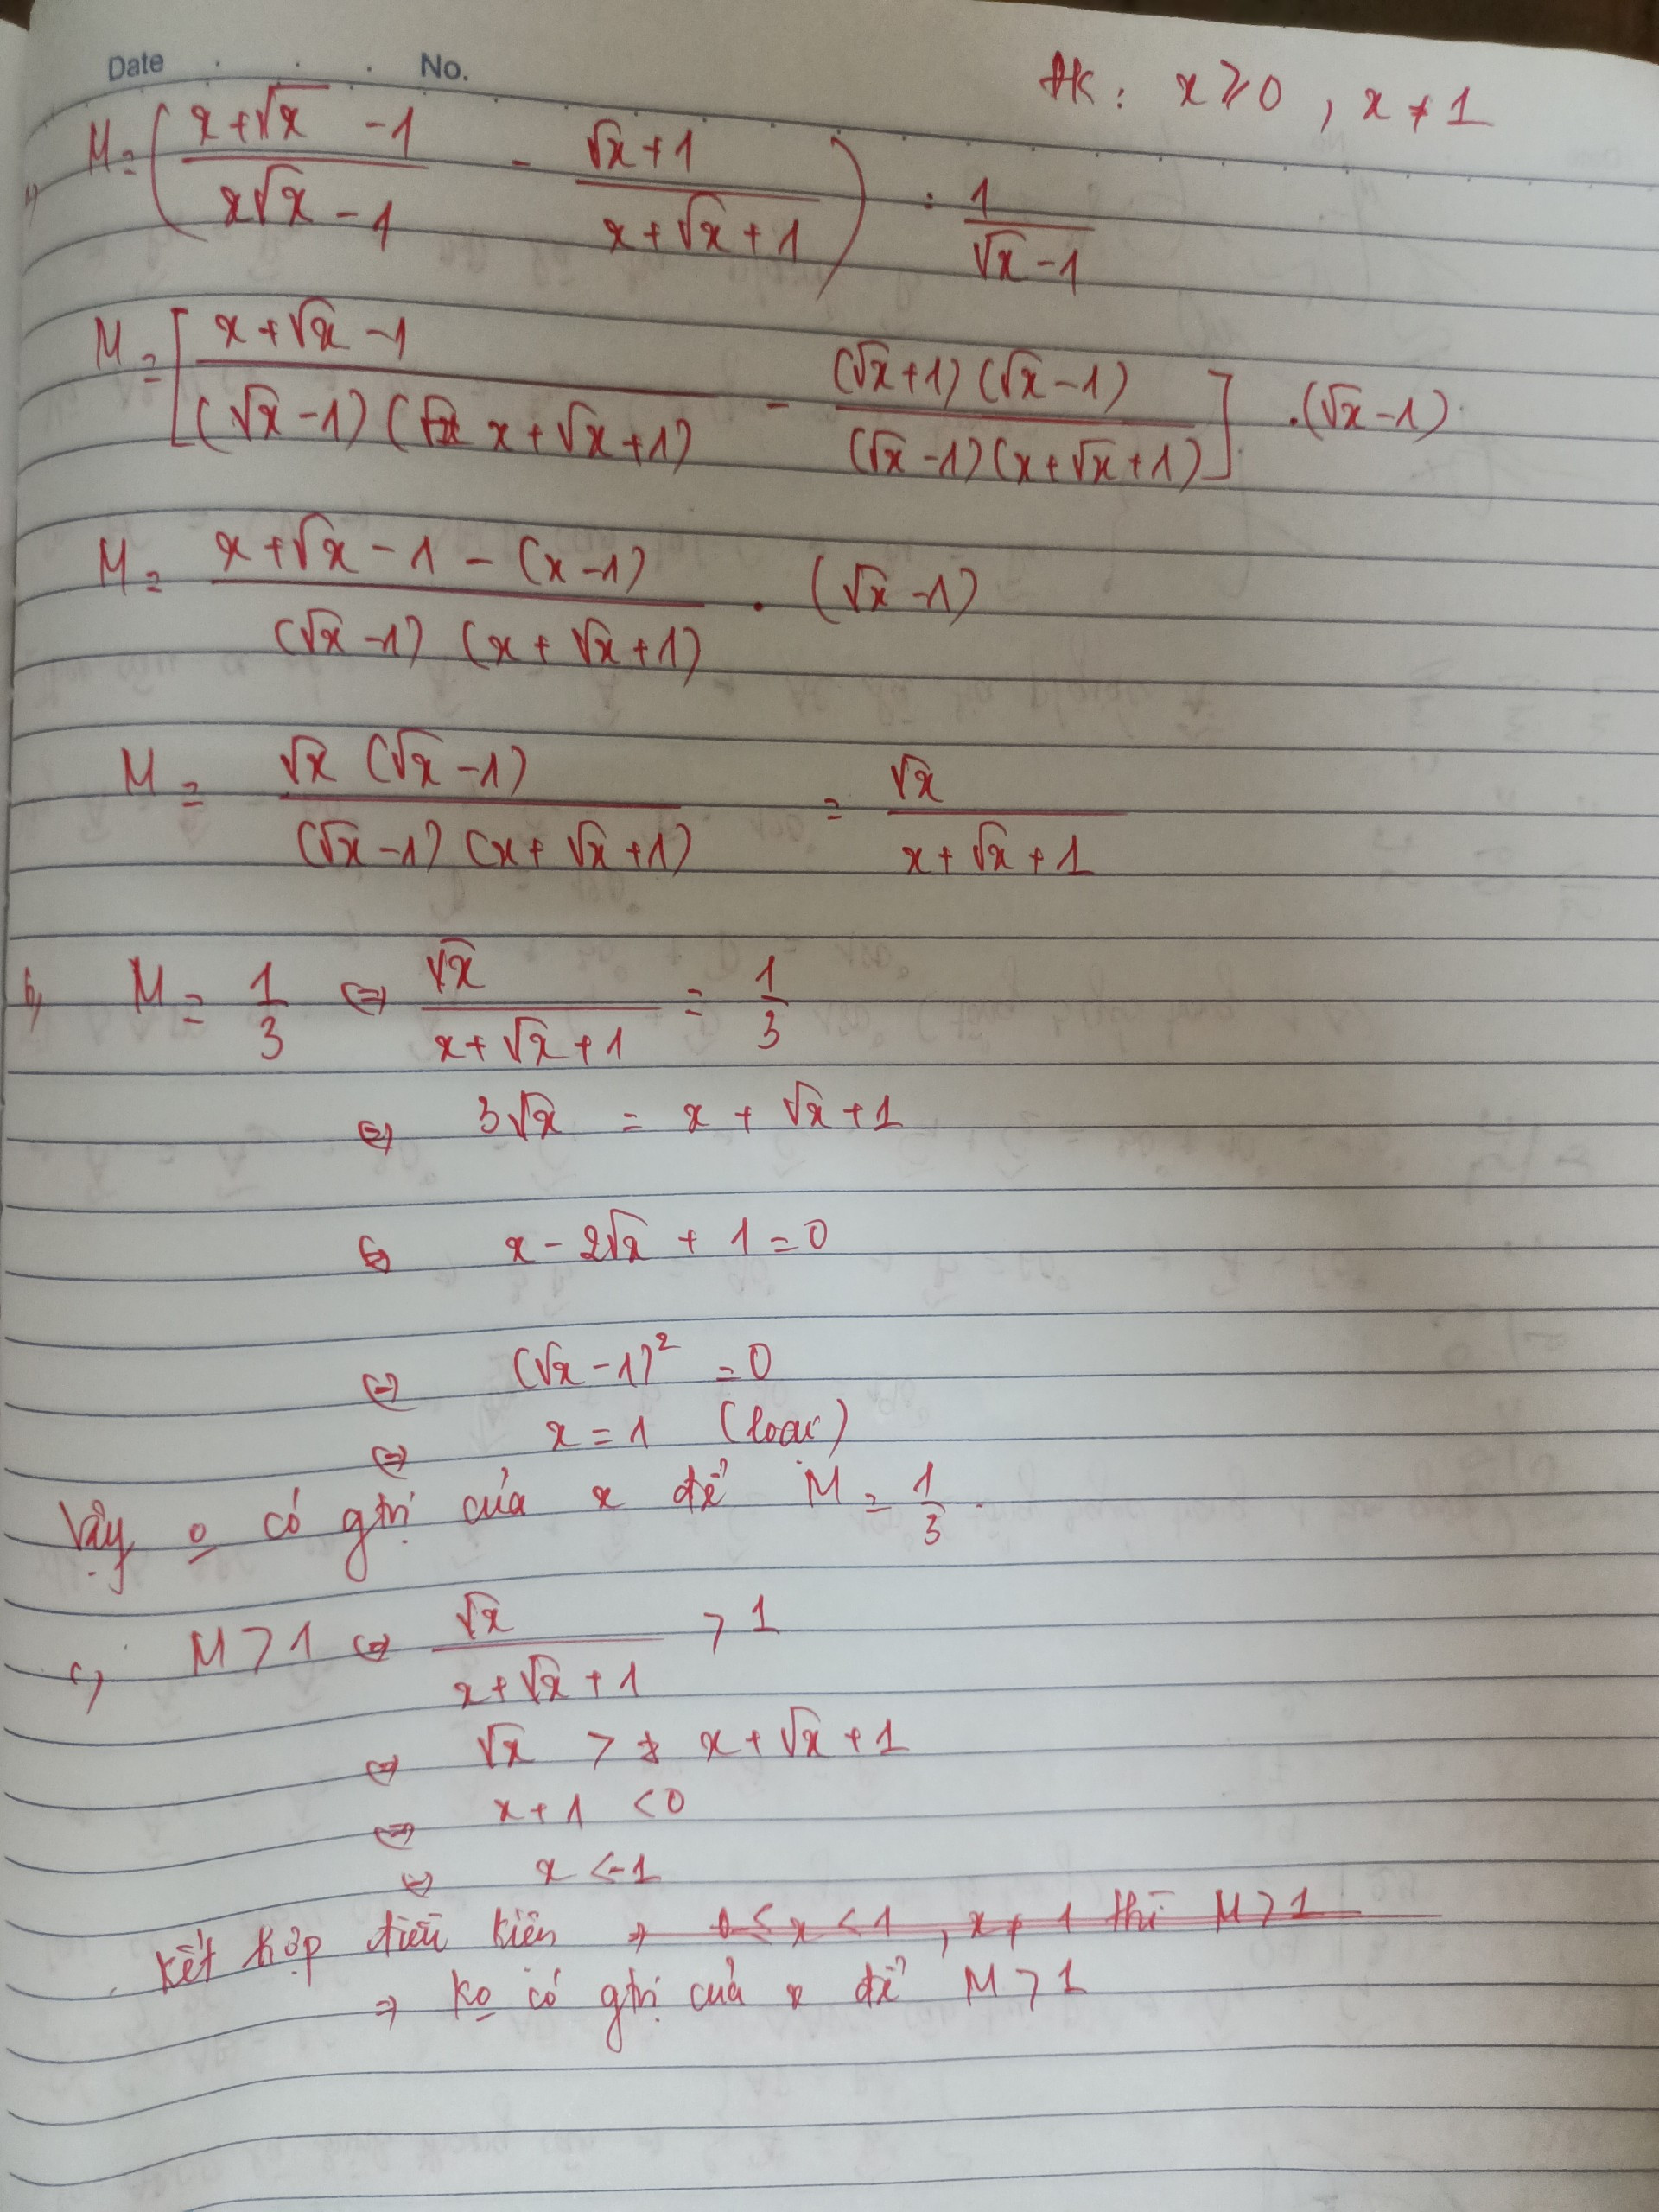 Date . . . No.
ĐK: x ≥ 0, x ≠ 1
M = ( (x+√x −1)/(x√x − 1) − (√x+1)/(x+√x+1) ) : 1/(√x −1)
M = [ (x+√x −1)/((√x −1)(x+√x+1)) − ((√x+1)(√x−1))/((√x−1)(x+√x+1)) ] .(√x−1)
M = (x+√x − 1 − (x−1))/((√x −1)(x + √x+1)) . (√x −1)
M = (√x (√x −1))/((√x −1)(x+ √x+1)) = √x/(x+ √x +1)
b, M = 1/3 ⇔ √x/(x+√x+1) = 1/3
⇔ 3√x = x + √x+1
⇔ x − 2√x + 1 = 0
⇔ (√x −1)² = 0
⇔ x = 1 (loại)
Vậy o có gtrị của x để M = 1/3.
c, M > 1 ⇔ √x/(x+√x+1) > 1
⇔ √x > x+√x+1
⇔ x+1 < 0
⇔ x <−1
Kết hợp điều kiện ⇒ 0 ≤ x < 1, x ≠ 1 thì M > 1
⇒ ko có gtrị của x để M > 1